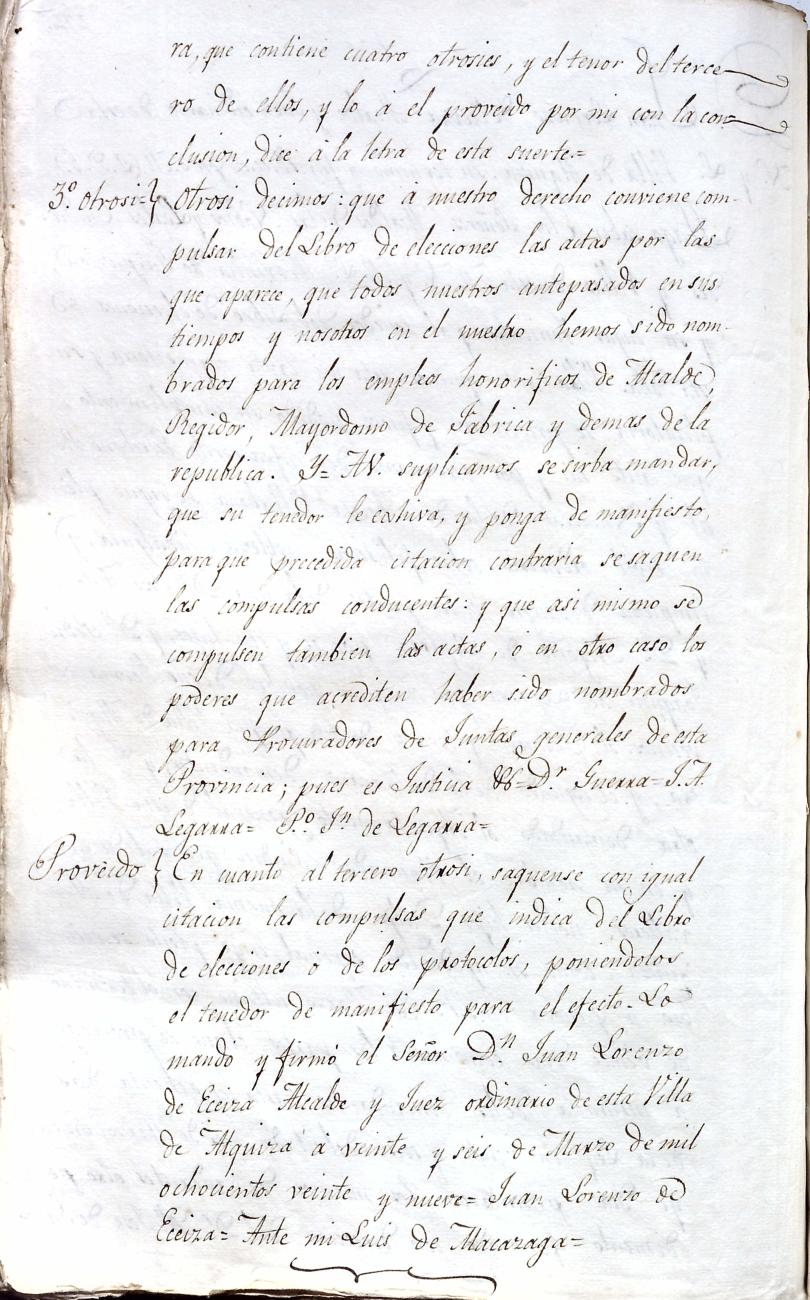 ra, que contiene cuatro otrosies, y el tenor del terce-
ro de ellos, y lo á el proveido por mi con la con=
clusion, dice á la letra de esta suerte.=
3º. otrosi= } Otrosi decimos: que á nuestro derecho conviene com-
pulsar del Libro de elecciones las actas por las
que aparece, que todos nuestros antepasados en sus
tiempos y nosotros en el nuestro hemos sido nom-
brados para los empleos honorificos de Alcalde,
Regidor, Mayordomo de Fabrica y demas de la
republica. Y= A V. suplicamos se sirba mandar,
que su tenedor le exhiva, y ponga de manifiesto,
para que precedida citacion contraria se saquen
las compulsas conducentes: y que asi mismo se
compulsen tambien las actas, ó en otro caso los
poderes que acrediten haber sido nombrados
para Procuradores de Juntas generales de esta
Provincia; pues es Justicia &= Dr. Guerra= J. A.
Legarra= Po. Jn. de Legarra=
Proveido } En cuanto al tercero otrosi, saquense con igual
citacion las compulsas que indica del Libro
de elecciones ó de los protocolos, poniendolos
el tenedor de manifiesto para el efecto. Lo
mandó y firmó el Señor Dn. Juan Lorenzo
de Eceiza Alcalde y Juez ordinario de esta Villa
de Alquiza á veinte y seis de Marzo de mil
ochocientos veinte y nueve= Juan Lorenzo de
Eceiza= Ante mi Luis de Macazaga=